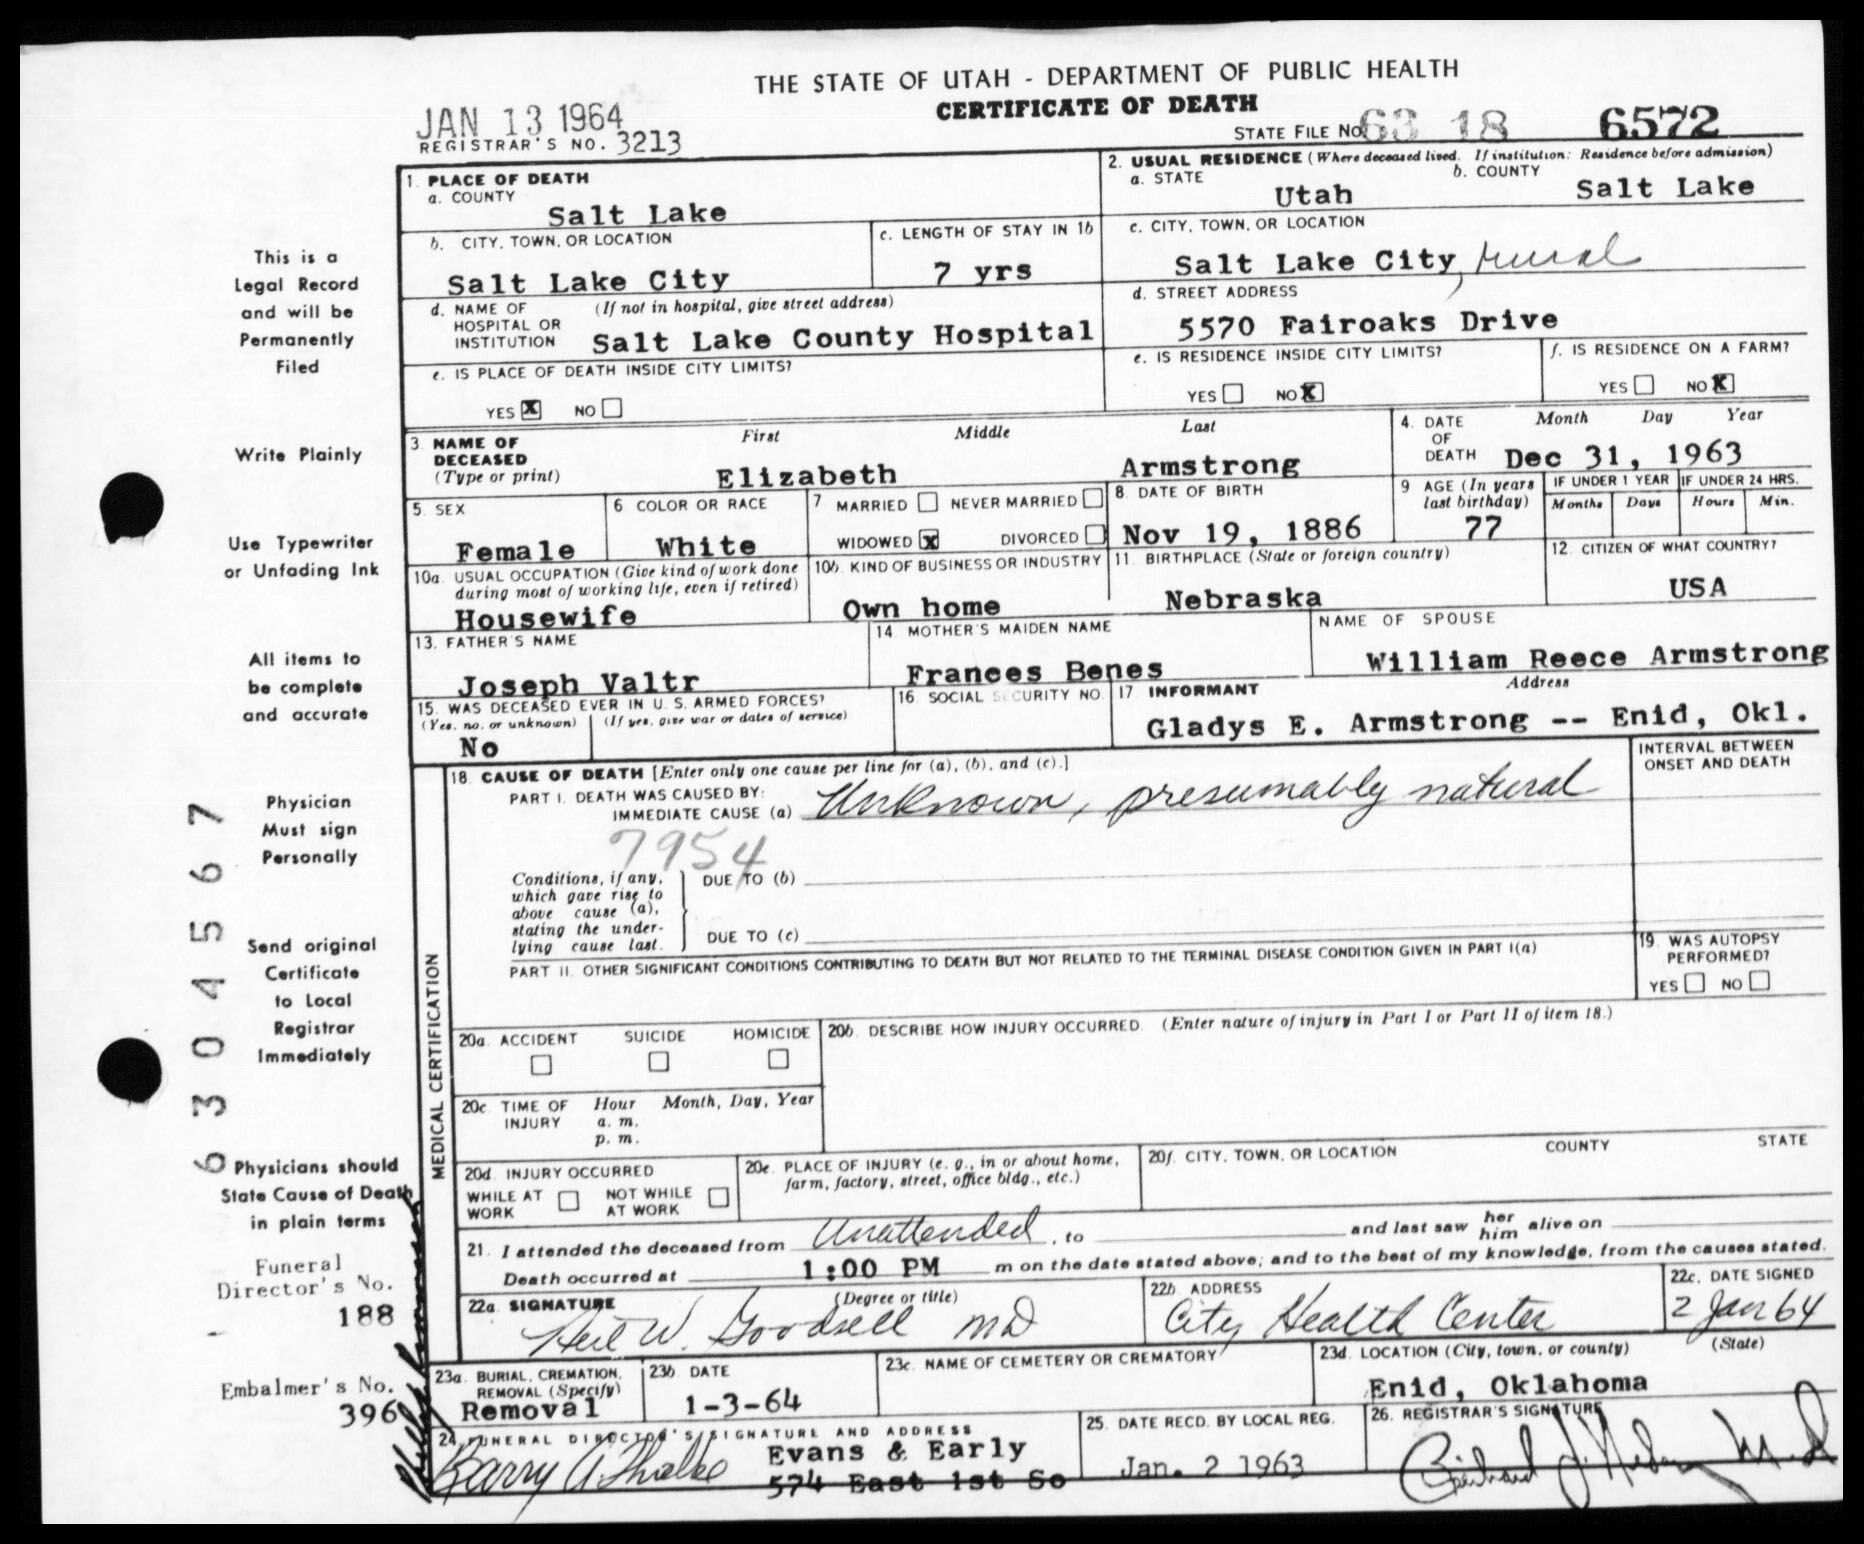 THE STATE OF UTAH - DEPARTMENT OF PUBLIC HEALTH
CERTIFICATE OF DEATH
JAN 13 1964
REGISTRAR'S NO. 3213
STATE FILE NO. 63 18 6572
1. PLACE OF DEATH
a. COUNTY
Salt Lake
2. USUAL RESIDENCE (Where deceased lived. If institution: Residence before admission)
a. STATE
Utah
b. COUNTY
Salt Lake
b. CITY, TOWN, OR LOCATION
Salt Lake City
c. LENGTH OF STAY IN 1b
7 yrs
c. CITY, TOWN, OR LOCATION
Salt Lake City, rural
d. NAME OF HOSPITAL OR INSTITUTION
(If not in hospital, give street address)
Salt Lake County Hospital
d. STREET ADDRESS
5570 Fairoaks Drive
e. IS PLACE OF DEATH INSIDE CITY LIMITS?
YES X NO
e. IS RESIDENCE INSIDE CITY LIMITS?
YES NO X
f. IS RESIDENCE ON A FARM?
YES NO X
3. NAME OF DECEASED
(Type or print)
First Middle Last
Elizabeth Armstrong
4. DATE OF DEATH
Month Day Year
Dec 31, 1963
5. SEX
Female
6 COLOR OR RACE
White
7 MARRIED NEVER MARRIED
WIDOWED X DIVORCED
8. DATE OF BIRTH
Nov 19, 1886
9 AGE (In years last birthday)
77
IF UNDER 1 YEAR
Months Days
IF UNDER 24 HRS.
Hours Min.
10a. USUAL OCCUPATION (Give kind of work done during most of working life, even if retired)
Housewife
10b. KIND OF BUSINESS OR INDUSTRY
Own home
11. BIRTHPLACE (State or foreign country)
Nebraska
12. CITIZEN OF WHAT COUNTRY?
USA
13. FATHER'S NAME
Joseph Valtr
14. MOTHER'S MAIDEN NAME
Frances Benes
NAME OF SPOUSE
William Reece Armstrong
15. WAS DECEASED EVER IN U.S. ARMED FORCES?
(Yes, no, or unknown) (If yes, give war or dates of service)
No
16. SOCIAL SECURITY NO.
17. INFORMANT Address
Gladys E. Armstrong -- Enid, Okl.
MEDICAL CERTIFICATION
18. CAUSE OF DEATH [Enter only one cause per line for (a), (b), and (c).]
INTERVAL BETWEEN ONSET AND DEATH
PART I. DEATH WAS CAUSED BY:
IMMEDIATE CAUSE (a) Unknown, presumably natural
7954
Conditions, if any, which gave rise to above cause (a), stating the underlying cause last.
DUE TO (b)
DUE TO (c)
PART II. OTHER SIGNIFICANT CONDITIONS CONTRIBUTING TO DEATH BUT NOT RELATED TO THE TERMINAL DISEASE CONDITION GIVEN IN PART I(a)
19. WAS AUTOPSY PERFORMED?
YES NO
20a. ACCIDENT SUICIDE HOMICIDE
20b. DESCRIBE HOW INJURY OCCURRED. (Enter nature of injury in Part I or Part II of item 18.)
20c. TIME OF INJURY
Hour Month, Day, Year
a. m.
p. m.
20d. INJURY OCCURRED
WHILE AT WORK NOT WHILE AT WORK
20e. PLACE OF INJURY (e. g., in or about home, farm, factory, street, office bldg., etc.)
20f. CITY, TOWN, OR LOCATION COUNTY STATE
21. I attended the deceased from Unattended, to and last saw her him alive on
Death occurred at 1:00 PM m on the date stated above; and to the best of my knowledge, from the causes stated.
22a. SIGNATURE (Degree or title)
Neil W. Goodsell MD
22b. ADDRESS
City Health Center
22c. DATE SIGNED
2 Jan 64
23a. BURIAL, CREMATION, REMOVAL (Specify)
Removal
23b. DATE
1-3-64
23c. NAME OF CEMETERY OR CREMATORY
23d. LOCATION (City, town, or county) (State)
Enid, Oklahoma
24. FUNERAL DIRECTOR'S SIGNATURE AND ADDRESS
Barry A.
Evans & Early
574 East 1st So
25. DATE RECD. BY LOCAL REG.
Jan. 2 1963
26. REGISTRAR'S SIGNATURE
This is a
Legal Record
and will be
Permanently
Filed
Write Plainly
Use Typewriter
or Unfading Ink
All items to
be complete
and accurate
Physician
Must sign
Personally
Send original
Certificate
to Local
Registrar
Immediately
Physicians should
State Cause of Death
in plain terms
Funeral
Director's No.
188
Embalmer's No.
396
6304567